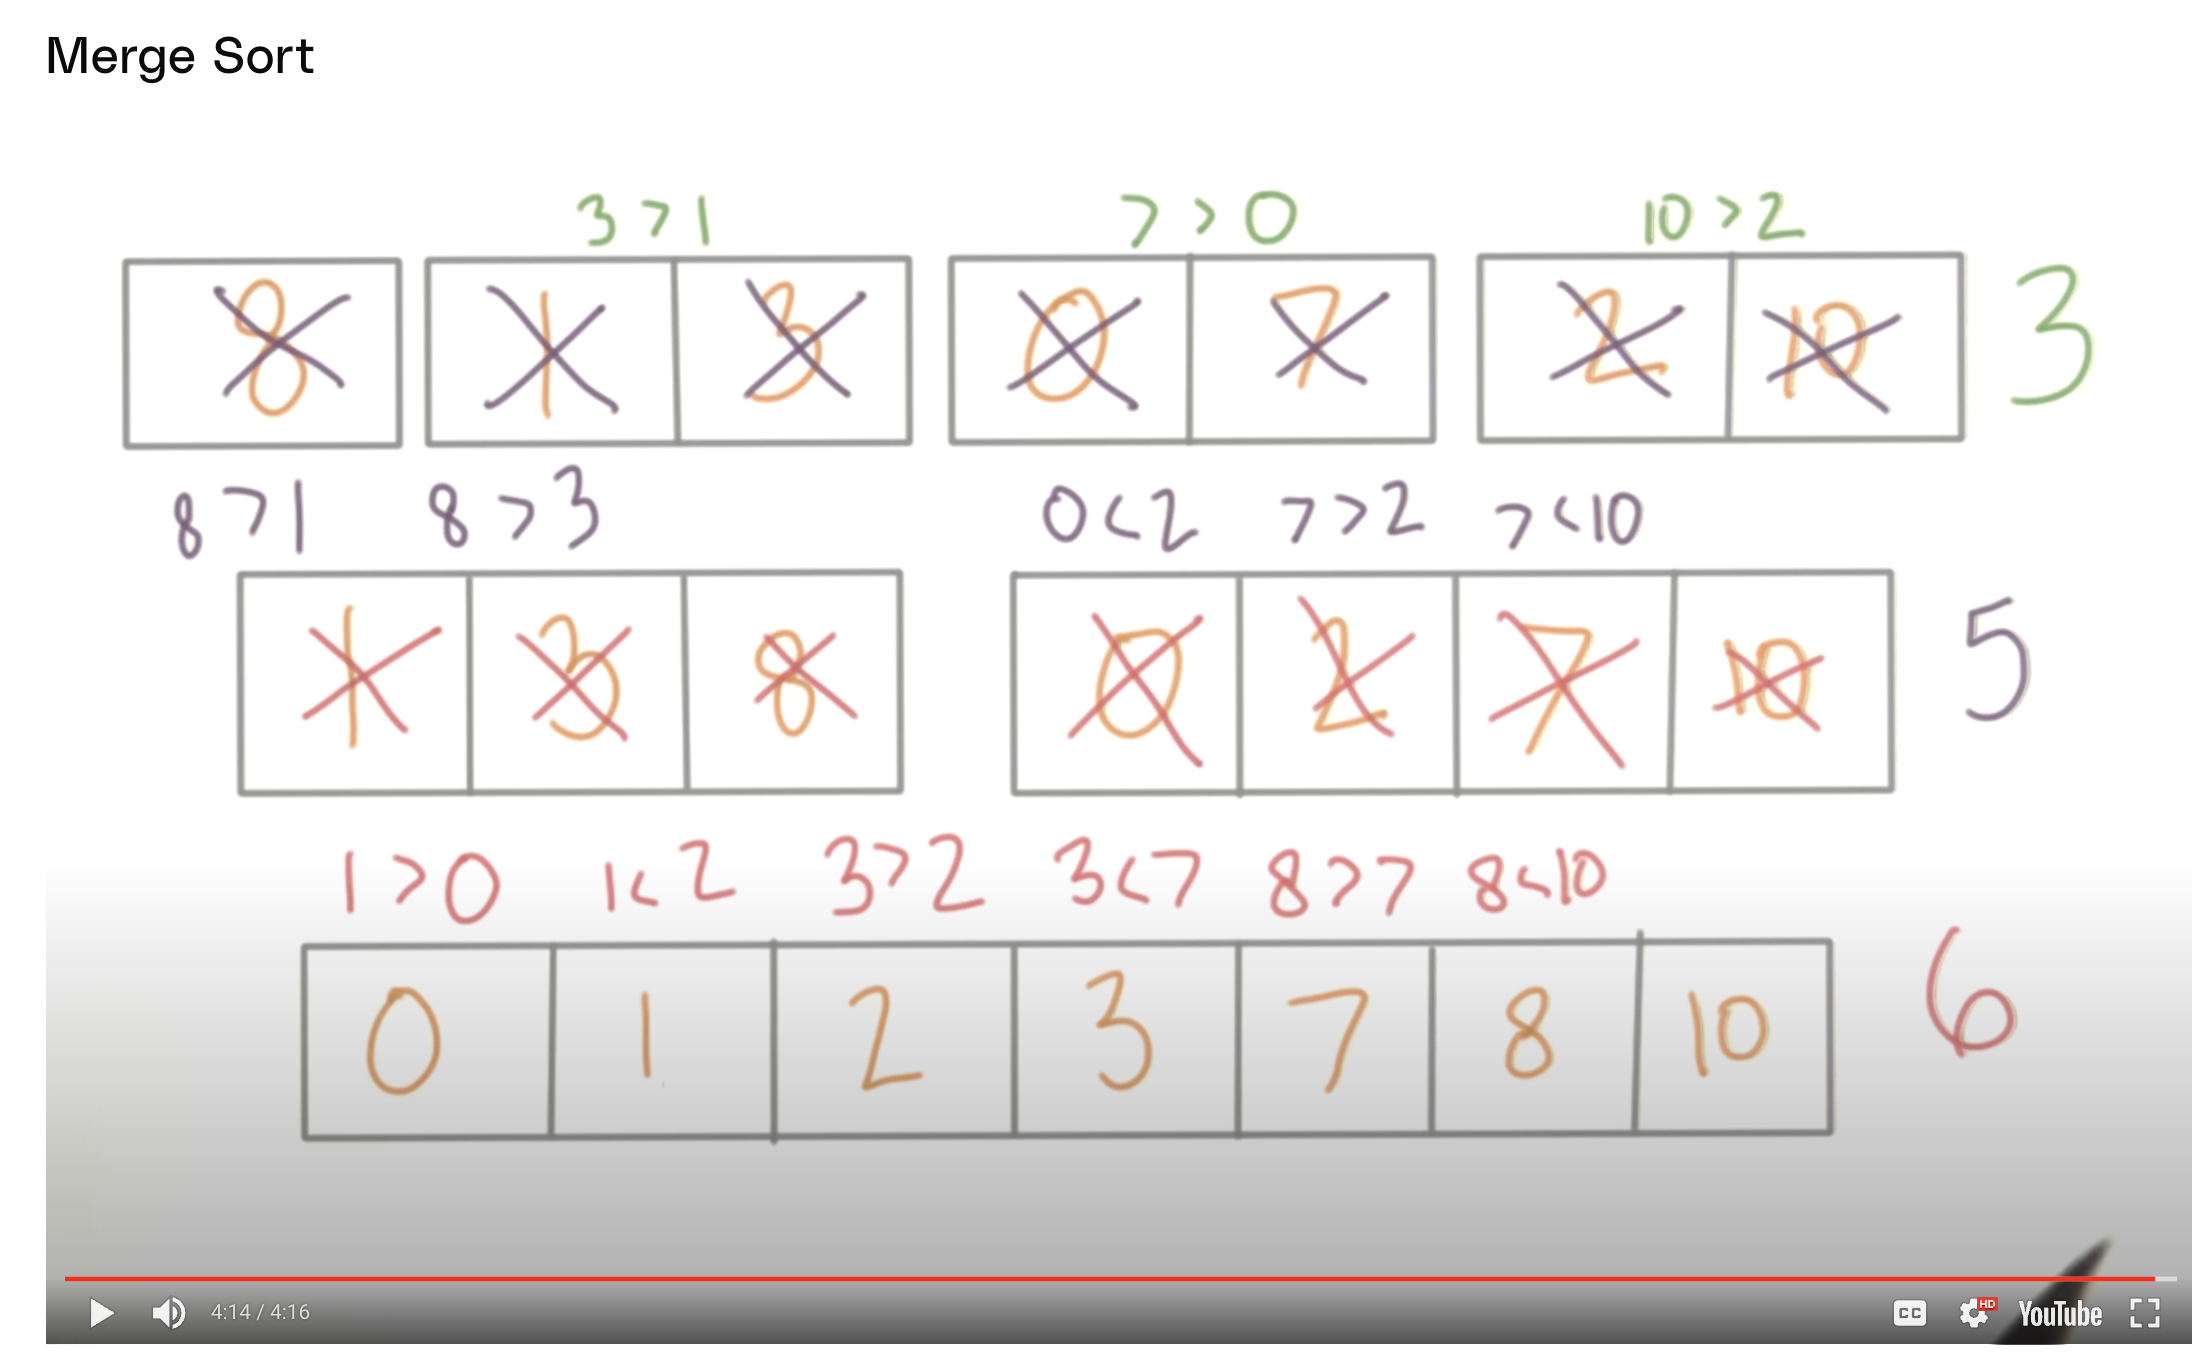 Merge Sort
3 > 1 7 > 0 10 > 2
8 1 3 0 7 2 10 3
8 > 1 8 > 3 0 < 2 7 > 2 7 < 10
1 3 8 0 2 7 10 5
1 > 0 1 < 2 3 > 2 3 < 7 8 > 7 8 < 10
0 1 2 3 7 8 10 6
4:14 / 4:16 CC HD YouTube